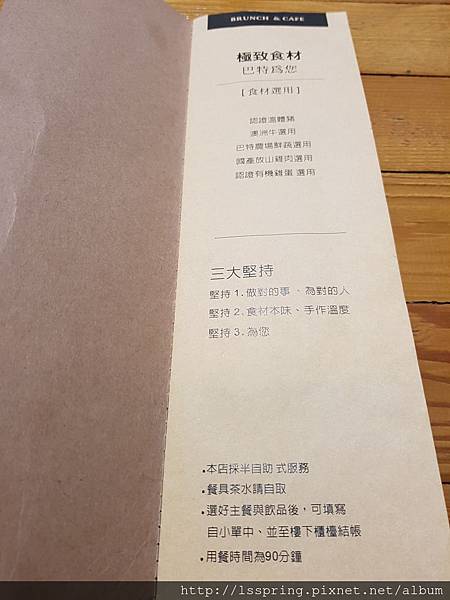 BRUNCH & CAFE
極致食材
巴特為您
[食材選用]
認證溫體豬
澳洲牛選用
巴特農場鮮蔬選用
國產放山雞肉選用
認證有機雞蛋 選用
三大堅持
堅持 1. 做對的事、為對的人
堅持 2. 食材本味、手作溫度
堅持 3. 為您
•本店採半自助 式服務
•餐具茶水請自取
•選好主餐與飲品後，可填寫
自小單中、並至樓下櫃檯結帳
•用餐時間為90分鐘
http://lsspring.pixnet.net/album